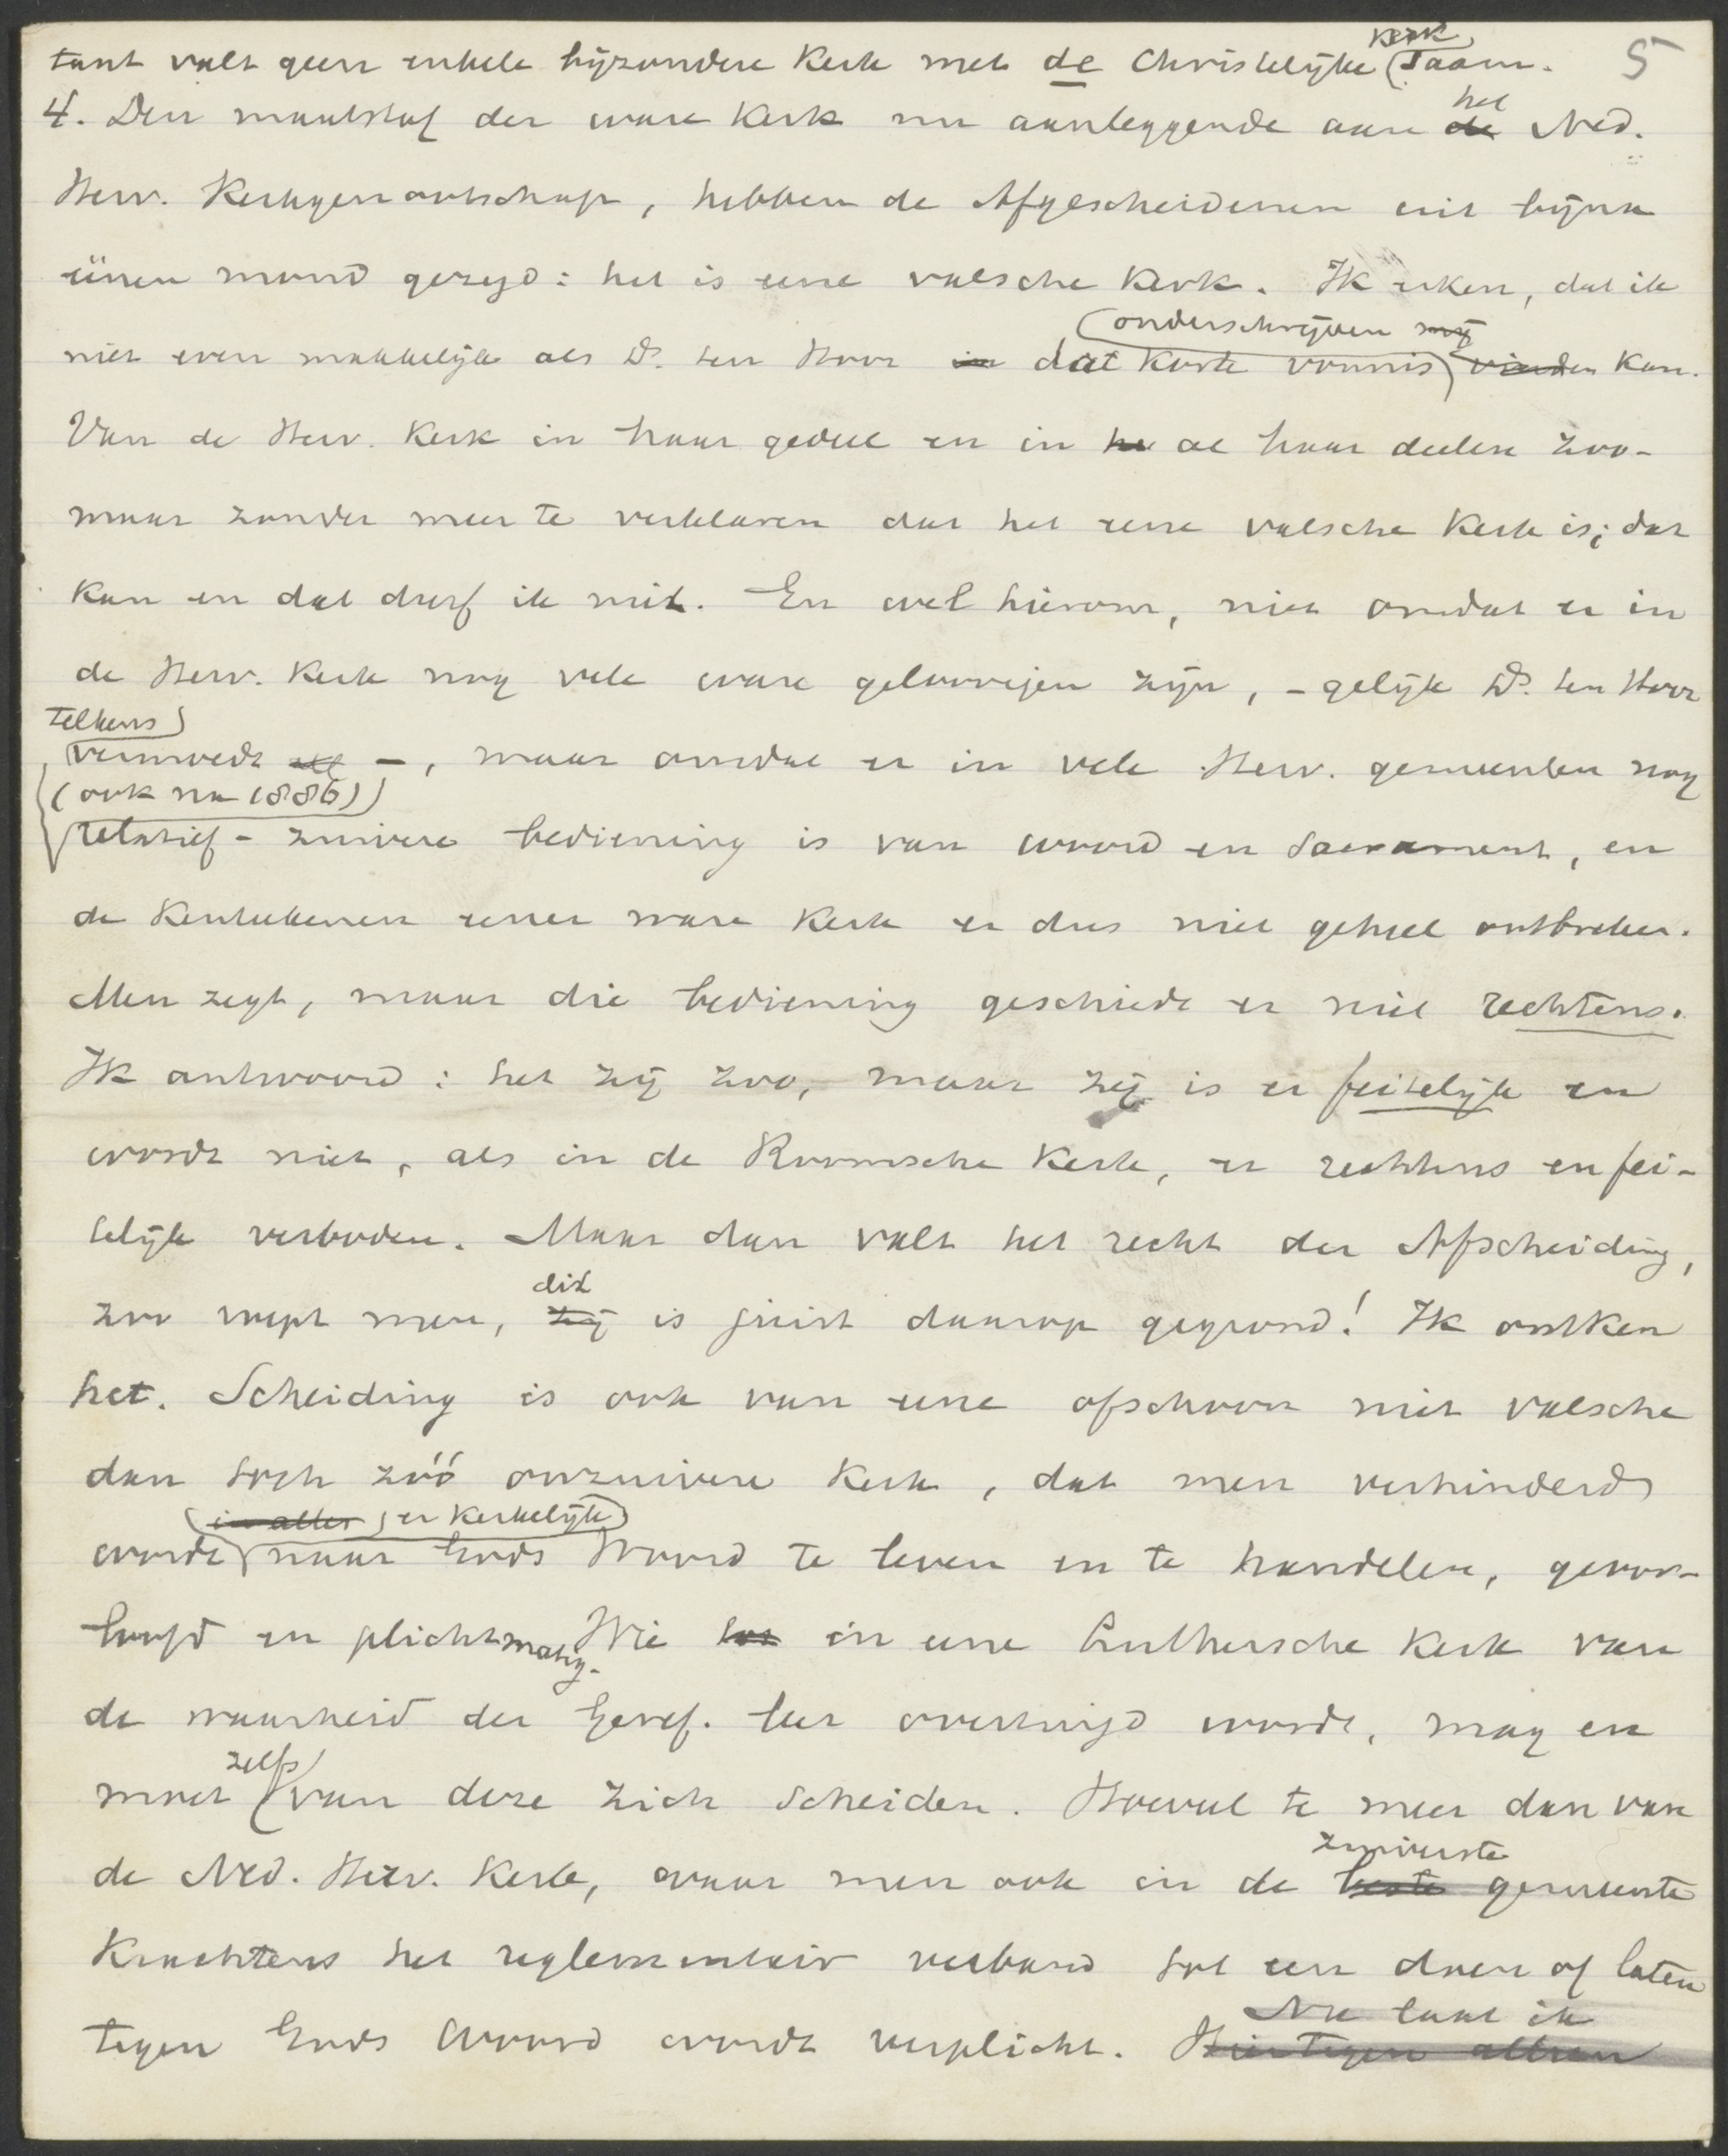 5
kerk
tant valt geen enkele bijzondere Kerk met de Christelijke saam.
4. Den maatstaf der ware Kerk nu aanleggende aan de het Ned.
Herv. Kerkgenootschap, hebben de Afgescheidenen uit bijna
éénen mond gezegd: het is eene valsche Kerk. Ik erken, dat ik
onderschrijven mij
niet even makkelijk als Ds. ten Hoor in dat korte vonnis vinden kan.
Van de Herv. Kerk in haar geheel en in ha al haar deelen zoo-
maar zonder meer te verklaren dat het eene valsche Kerk is; dat
kan en dat durf ik niet. En wel hierom, niet omdat er in
de Herv. Kerk nog vele ware geloovigen zijn, - gelijk Ds. ten Hoor
telkens
vermoedt -, maar omdat er in vele Herv. gemeenten nog
(ook na 1886)
relatief - zuivere bediening is van woord en Sacrament, en
de Kenteekenen eener ware Kerk er dus niet geheel ontbreken.
Men zegt, maar die bediening geschiedt er niet rechtens.
Ik antwoord: het zij zoo, maar zij is er feitelijk en
wordt niet, als in de Roomsche Kerk, er rechtens en fei-
telijk verboden. Maar dan valt het recht der Afscheiding,
dit
zoo roept men, zij is juist daarop gegrond! Ik ontken
het. Scheiding is ook van eene ofschoon niet valsche
dan toch zóó onzuivere Kerk, dat men verhinderd
in alles er kerkelijk
wordt naar Gods Woord te leven en te handelen, geoor-
loofd en plichtmatig. Wie tot in eene Luthersche Kerk van
de waarheid der Geref. leer overtuigd wordt, mag en
zelfs
moet van deze zich scheiden. Hoeveel te meer dan van
zuiverste
de Ned. Herv. Kerk, waar men ook in de beste gemeente
Krachtens het reglementair verband tot een doen of laten
Nu laat ik
tegen Gods Woord wordt verplicht. Hiertegen alleen